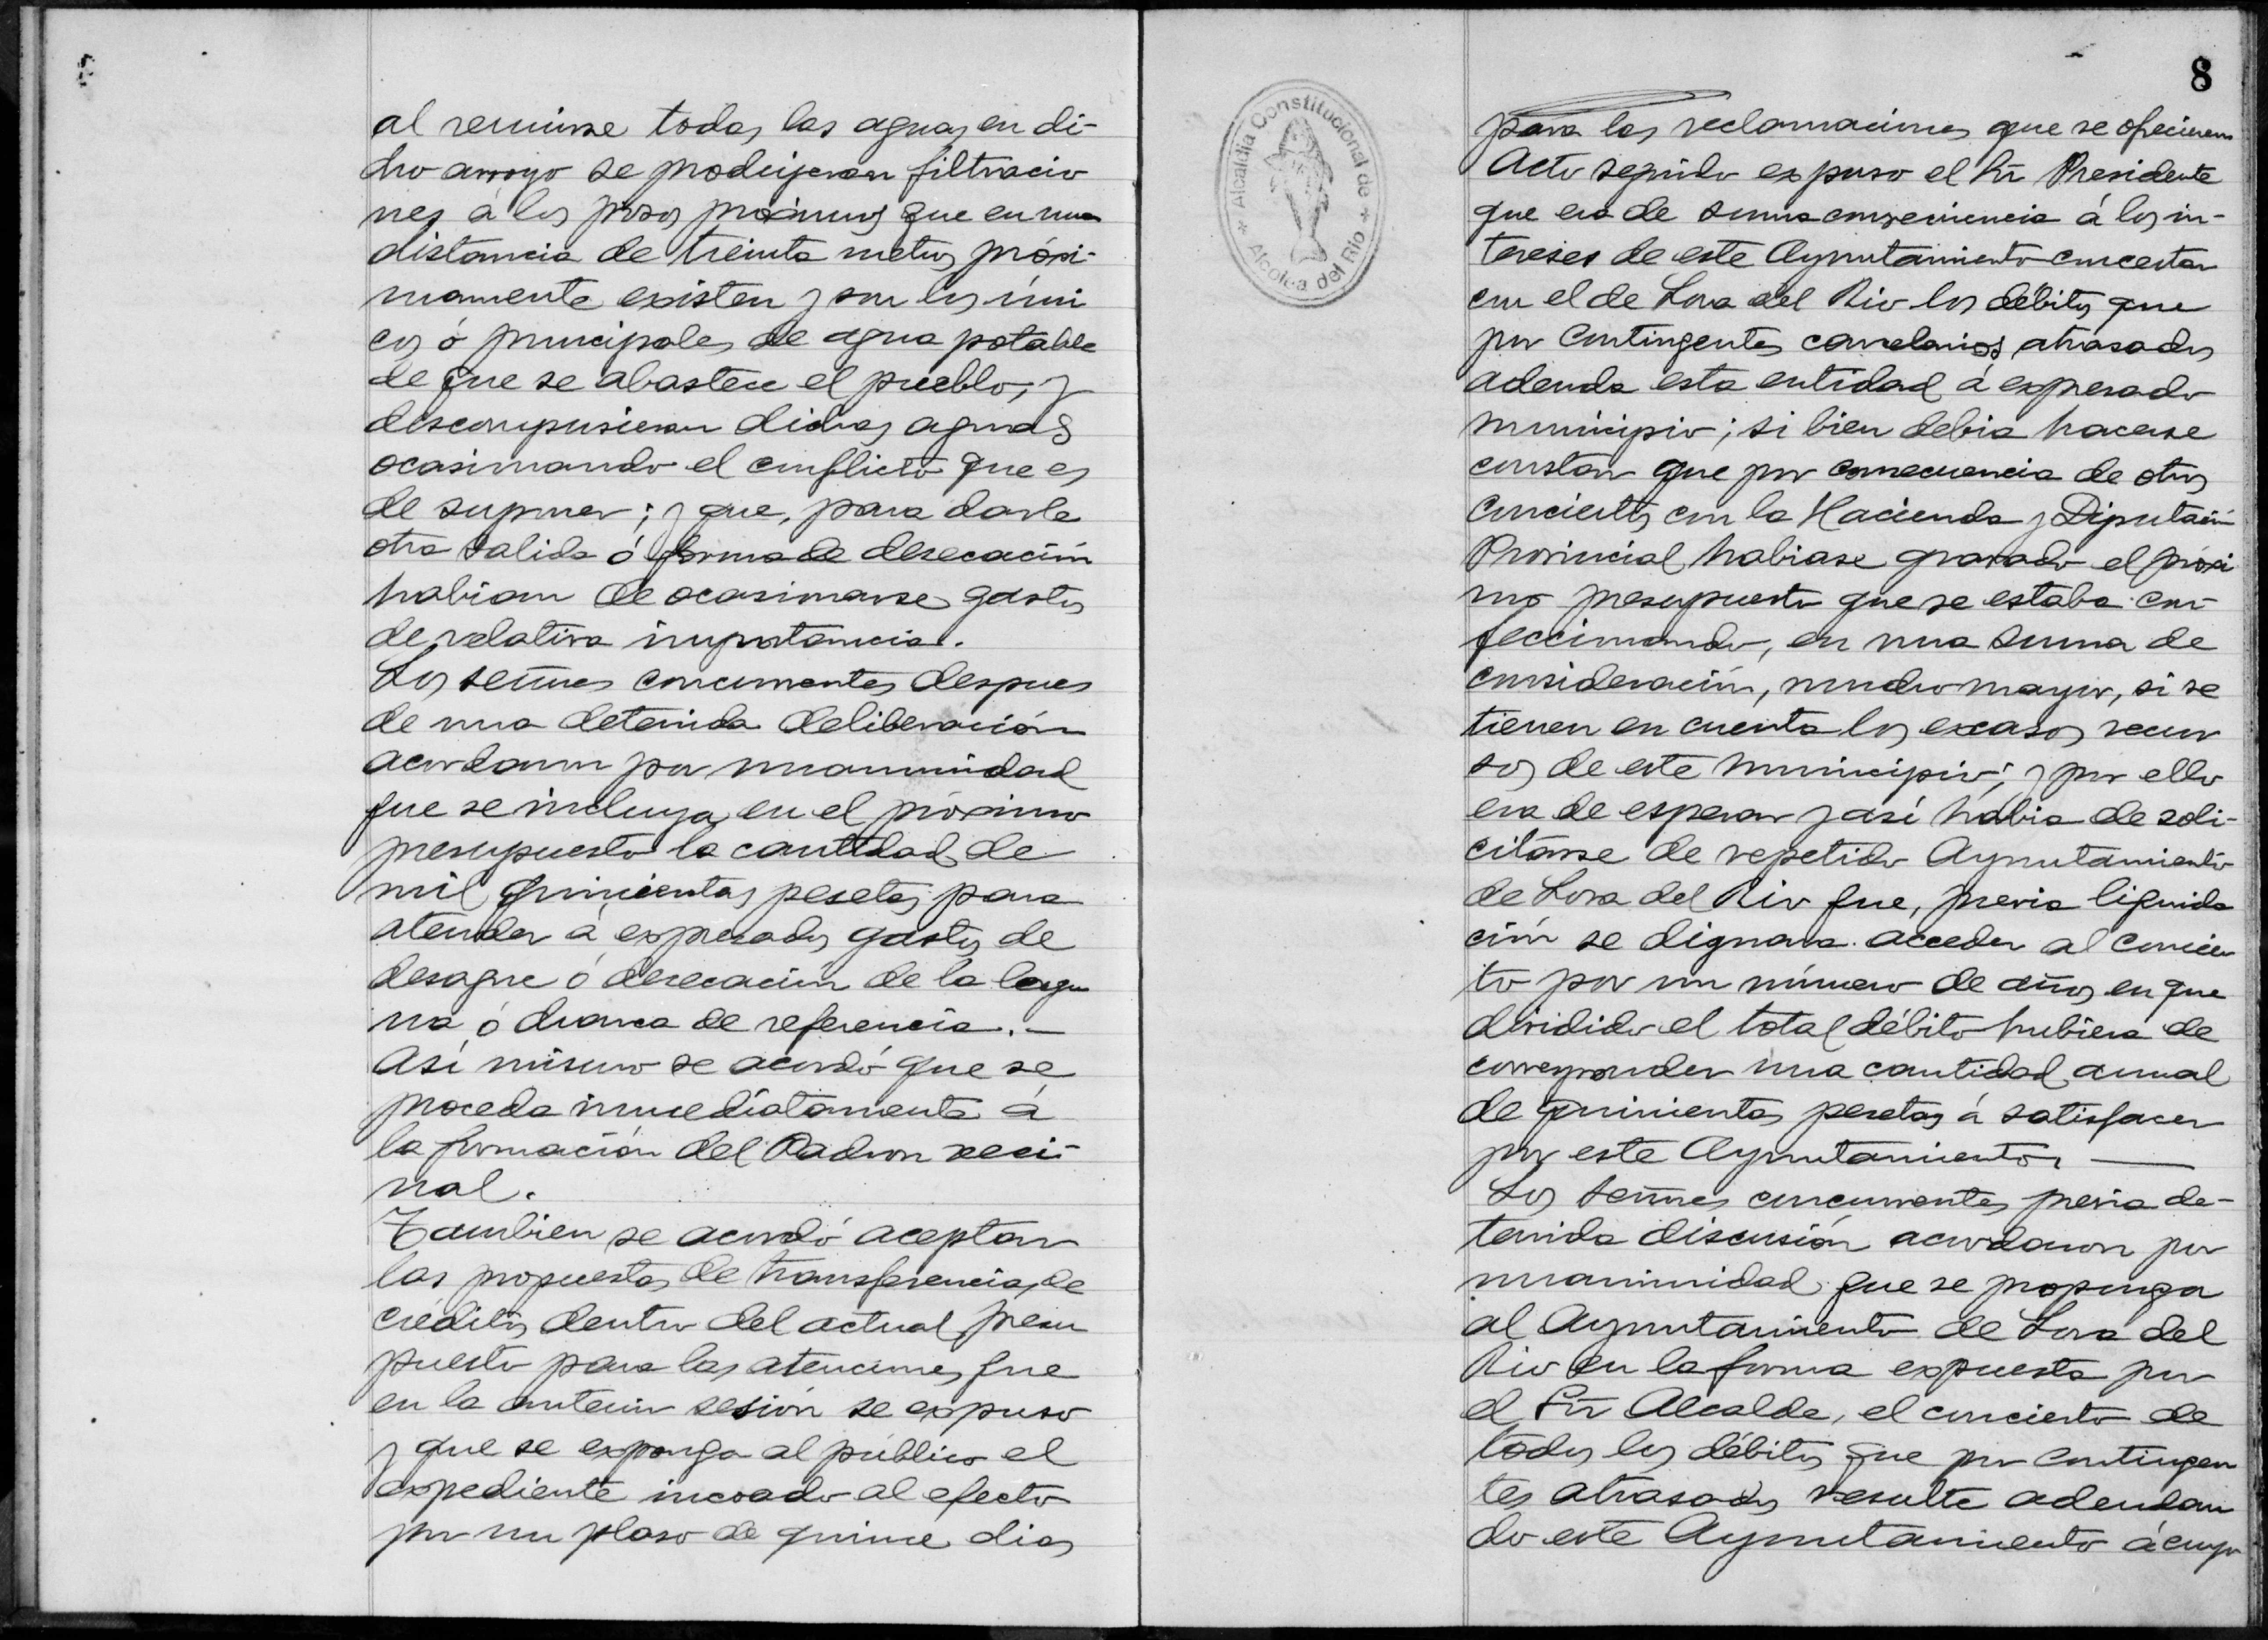 al reunirse todas las aguas en di-
cho arroyo se produjeran filtracio
nes á los pozos próximos que en una
distancia de treinta metros próxi-
mamente existen y son los úni
cos ó principales de agua potable
de que se abastece el pueblo; y
descompusieran dichas aguas
ocasionando el conflicto que es
de suponer; y que, para darle
otra salida ó forma de desecación
habian de ocasionarse gastos
de relativa importancia.
Los señores concurrentes despues
de una detenida deliberación
acordaron por unanimidad
que se incluya en el próximo
presupuesto la cantidad de
mil quinientas pesetas para
atender á expresados gastos de
desagüe ó desecación de la lagu
na ó charca de referencia.—
Asi mismo se acordó que se
proceda inmediatamente á
la formación del Padron veci-
nal.
Tambien se acordó aceptar
las propuestas de transferencias de
créditos dentro del actual presu
puesto para las atenciones que
en la anterior sesión se expuso
y que se exponga al público el
expediente incoado al efecto
por un plaso de quince dias
8
Alcaldía Constitucional de
Alcolea del Río
para las reclamaciones que se ofrecieren
Acto seguido expuso el Sr Presidente
que era de suma conveniencia á los in-
tereses de este Ayuntamiento concertar
con el de Lora del Rio los débitos que
por Contingentes carcelarios atrasados
adeuda esta entidad á expresado
municipio; si bien debia hacerse
constar que por consecuencia de otros
conciertos con la Hacienda y Diputación
Provincial habiase gravado el próxi
mo presupuesto que se estaba con-
feccionando, en una suma de
consideración, mucho mayor, si se
tienen en cuenta los escasos recur
sos de este municipio; y por ello
era de esperar y así habia de soli-
citarse de repetido Ayuntamiento
de Lora del Rio que, previa liquida
ción se dignara acceder al concier
to por un número de años en que
dividido el total débito hubiera de
corresponder una cantidad anual
de quinientas pesetas á satisfacer
por este Ayuntamiento.—
Los señores concurrentes previa de-
tenida discusión acordaron por
unanimidad que se proponga
al Ayuntamiento de Lora del
Rio en la forma expuesta por
el Sr Alcalde, el concierto de
todos los débitos que por contingen
tes atrasados resulte adeudan
do este Ayuntamiento á cuyo